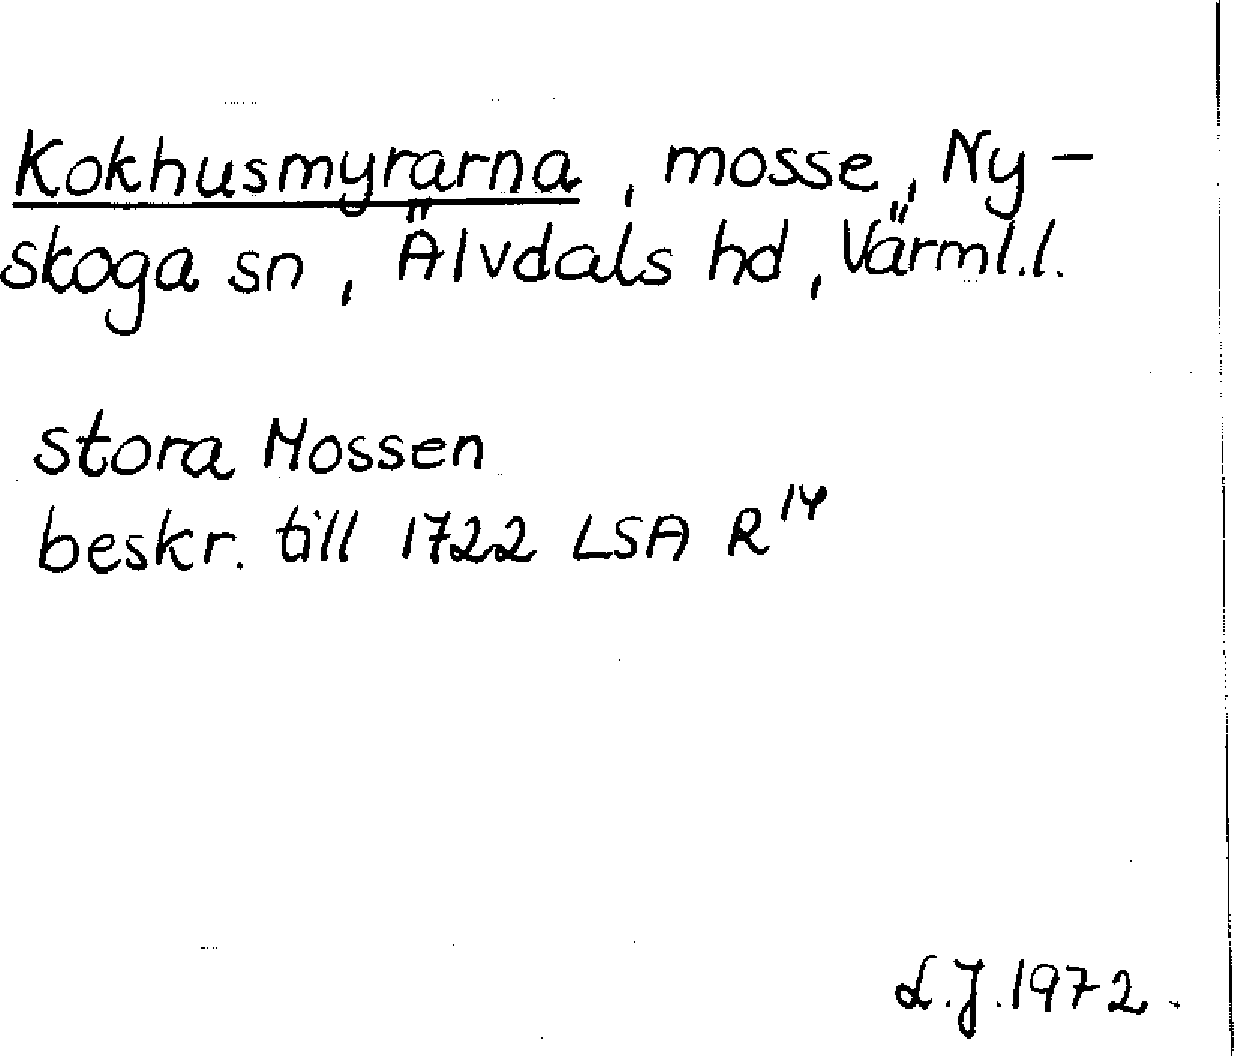 Kokhusmyrarna, mosse, Ny-
skoga sn, Älvdals hd, Värml.l.
stora Mossen
beskr. till 1722 LSA R¹⁴
L.J. 1972.